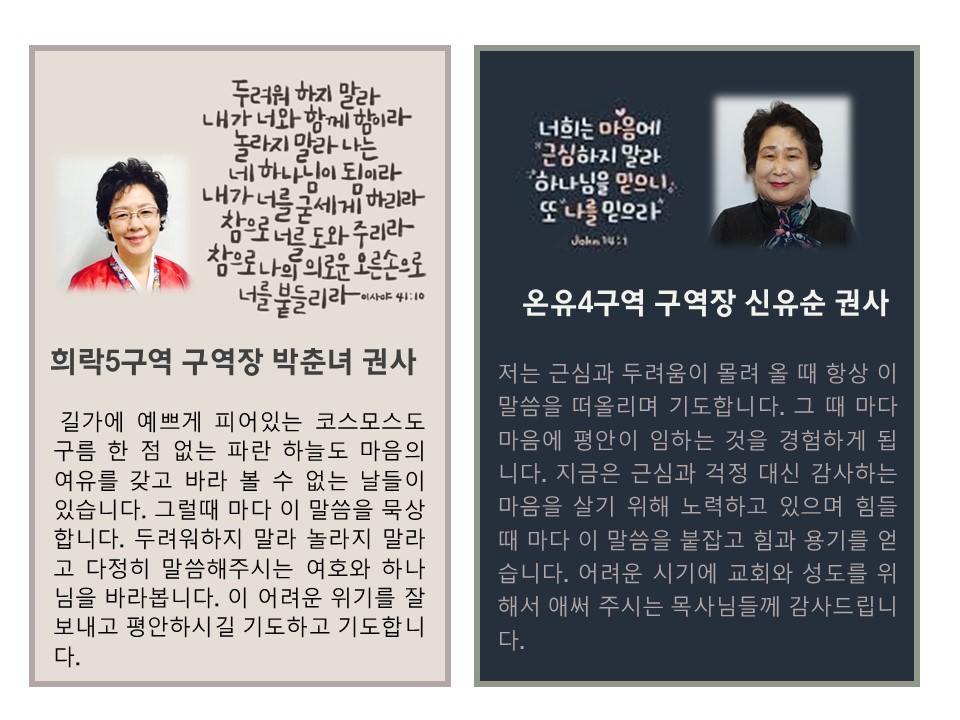 두려워 하지 말라
내가 너와 함께 함이라
놀라지 말라 나는
네 하나님이 됨이라
내가 너를 굳세게 하리라
참으로 너를 도와 주리라
참으로 나의 의로운 오른손으로
너를 붙들리라 이사야 41:10
희락5구역 구역장 박춘녀 권사
길가에 예쁘게 피어있는 코스모스도
구름 한 점 없는 파란 하늘도 마음의
여유를 갖고 바라 볼 수 없는 날들이
있습니다. 그럴때 마다 이 말씀을 묵상
합니다. 두려워하지 말라 놀라지 말라
고 다정히 말씀해주시는 여호와 하나
님을 바라봅니다. 이 어려운 위기를 잘
보내고 평안하시길 기도하고 기도합니
다.
너희는 마음에
근심하지 말라
하나님을 믿으니
또 나를 믿으라
John 14:1
온유4구역 구역장 신유순 권사
저는 근심과 두려움이 몰려 올 때 항상 이
말씀을 떠올리며 기도합니다. 그 때 마다
마음에 평안이 임하는 것을 경험하게 됩
니다. 지금은 근심과 걱정 대신 감사하는
마음을 살기 위해 노력하고 있으며 힘들
때 마다 이 말씀을 붙잡고 힘과 용기를 얻
습니다. 어려운 시기에 교회와 성도를 위
해서 애써 주시는 목사님들께 감사드립니
다.